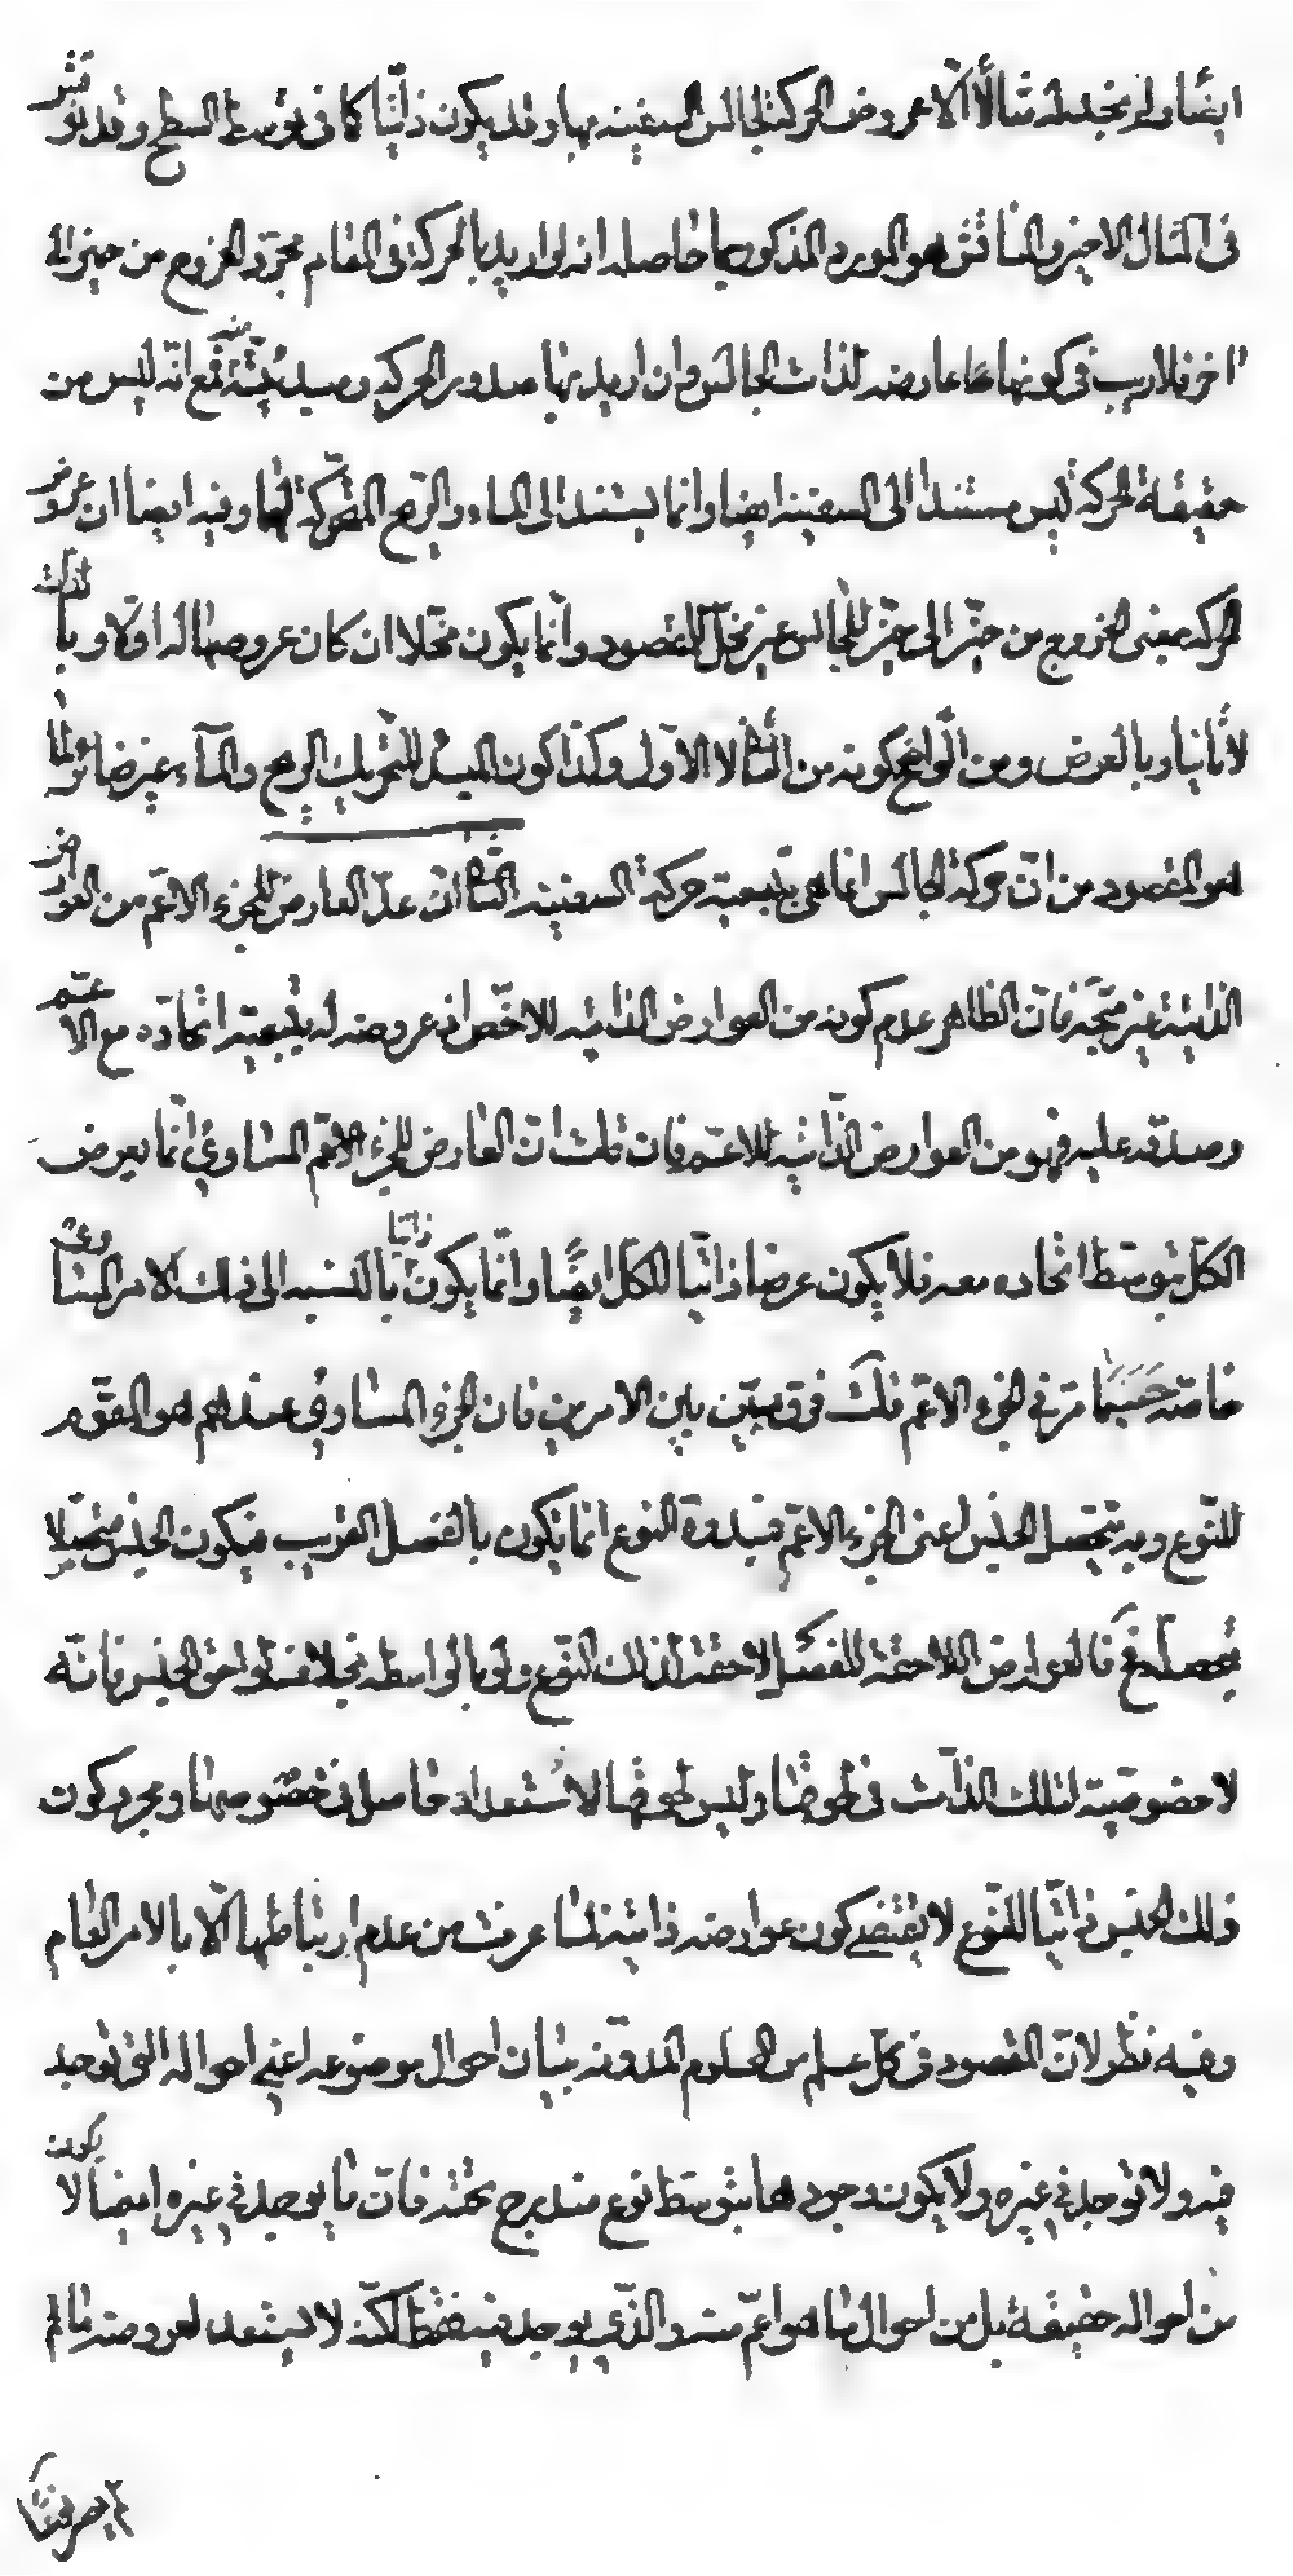 ايضا ولم نجد له مثالا الا عروض الحركة لجالس السفينة بها وقد يكون ذاتيا كما فى توسط السطح وقد نوقش
فى المثال الاخير والمناقش هو المورد المذكور بما حاصله انه لو اريد بالحركة فى المقام مجرد الخروج من حيز الى
اخر فلا ريب فى كونها عارضه لذات الجالس وان اريد بها صدور الحركة وصيد منه فمع انه ليس من
حقيقة الحركة ليس مستندا الى السفينة ايضا وانما يستند الى الماء والريح المحركة لها وفيه ايضا ان عروض
الحركة بمعنى الخروج من حيز الى حيز للجالس غير مخل بالمقصود وانما يكون مخلا ان كان عروضها له اولا وبالذات
لا ثانيا وبالعرض ومن الواضح كونه من الثانى لا الاول وكذا كون الميل للتحريك الريح والماء غير ضائر لما
هو المقصود من ان حركة الجالس انما هى بتبعية حركة السفينة الثانى ان عد العارض للجزء الاعم من العوارض
الذاتية غير متجه فان الظاهر عدم كونه من العوارض الذاتيه للاخص اذ عروضه له بتبعية اتحاده مع الاعم
وصدقه عليه فهو من العوارض الذاتيه للاعم فان قلت ان العارض للجزء الاعم المساوي انما يعرض
الكل بتوسط اتحاده معه فلا يكون عرضا ذاتيا للكل ايضا وانما يكون ذاتيا بالنسبه الى ذلك الامر المساوى
خاصة حسبما مر في الجزء الاعم قلت فرق بين بين الامرين فان الجزء المساوي عندهم هو المقوم
للنوع وبه يتحصل الجنس اعنى الجزء الاعم فتذوت النوع انما يكون بالفصل القريب فيكون الجنس متحصلا
بتحصله فح فالعوارض اللاحقة للفصل لاحقة لذلك النوع ولو بالواسطه بخلاف لواحق الجنس فانه
لا خصوصية لتلك الذات فى لحوقها وليس لحوقها لاستعداد حاصل فى خصوصها ومجرد كون
ذلك الجنس ذاتيا للنوع لا يقتضى كون عوارضه ذاتية لما عرفت من عدم ارتباطها الا بالامر العام
وفيه نظر لان المقصود فى كل علم من العلوم المدونه بيان احوال موضوعه اعنى احواله التى توجد
فيه ولا توجد في غيره ولا يكون وجودها بتوسط نوع مندرج تحته فان ما يوجد في غيره ايضا لا يكون
من احواله حقيقة بل من احوال ما هو اعم منه والذي يوجد فيه فقط لكنه لا يستعد لعروضه ما لم
يصر نوعا